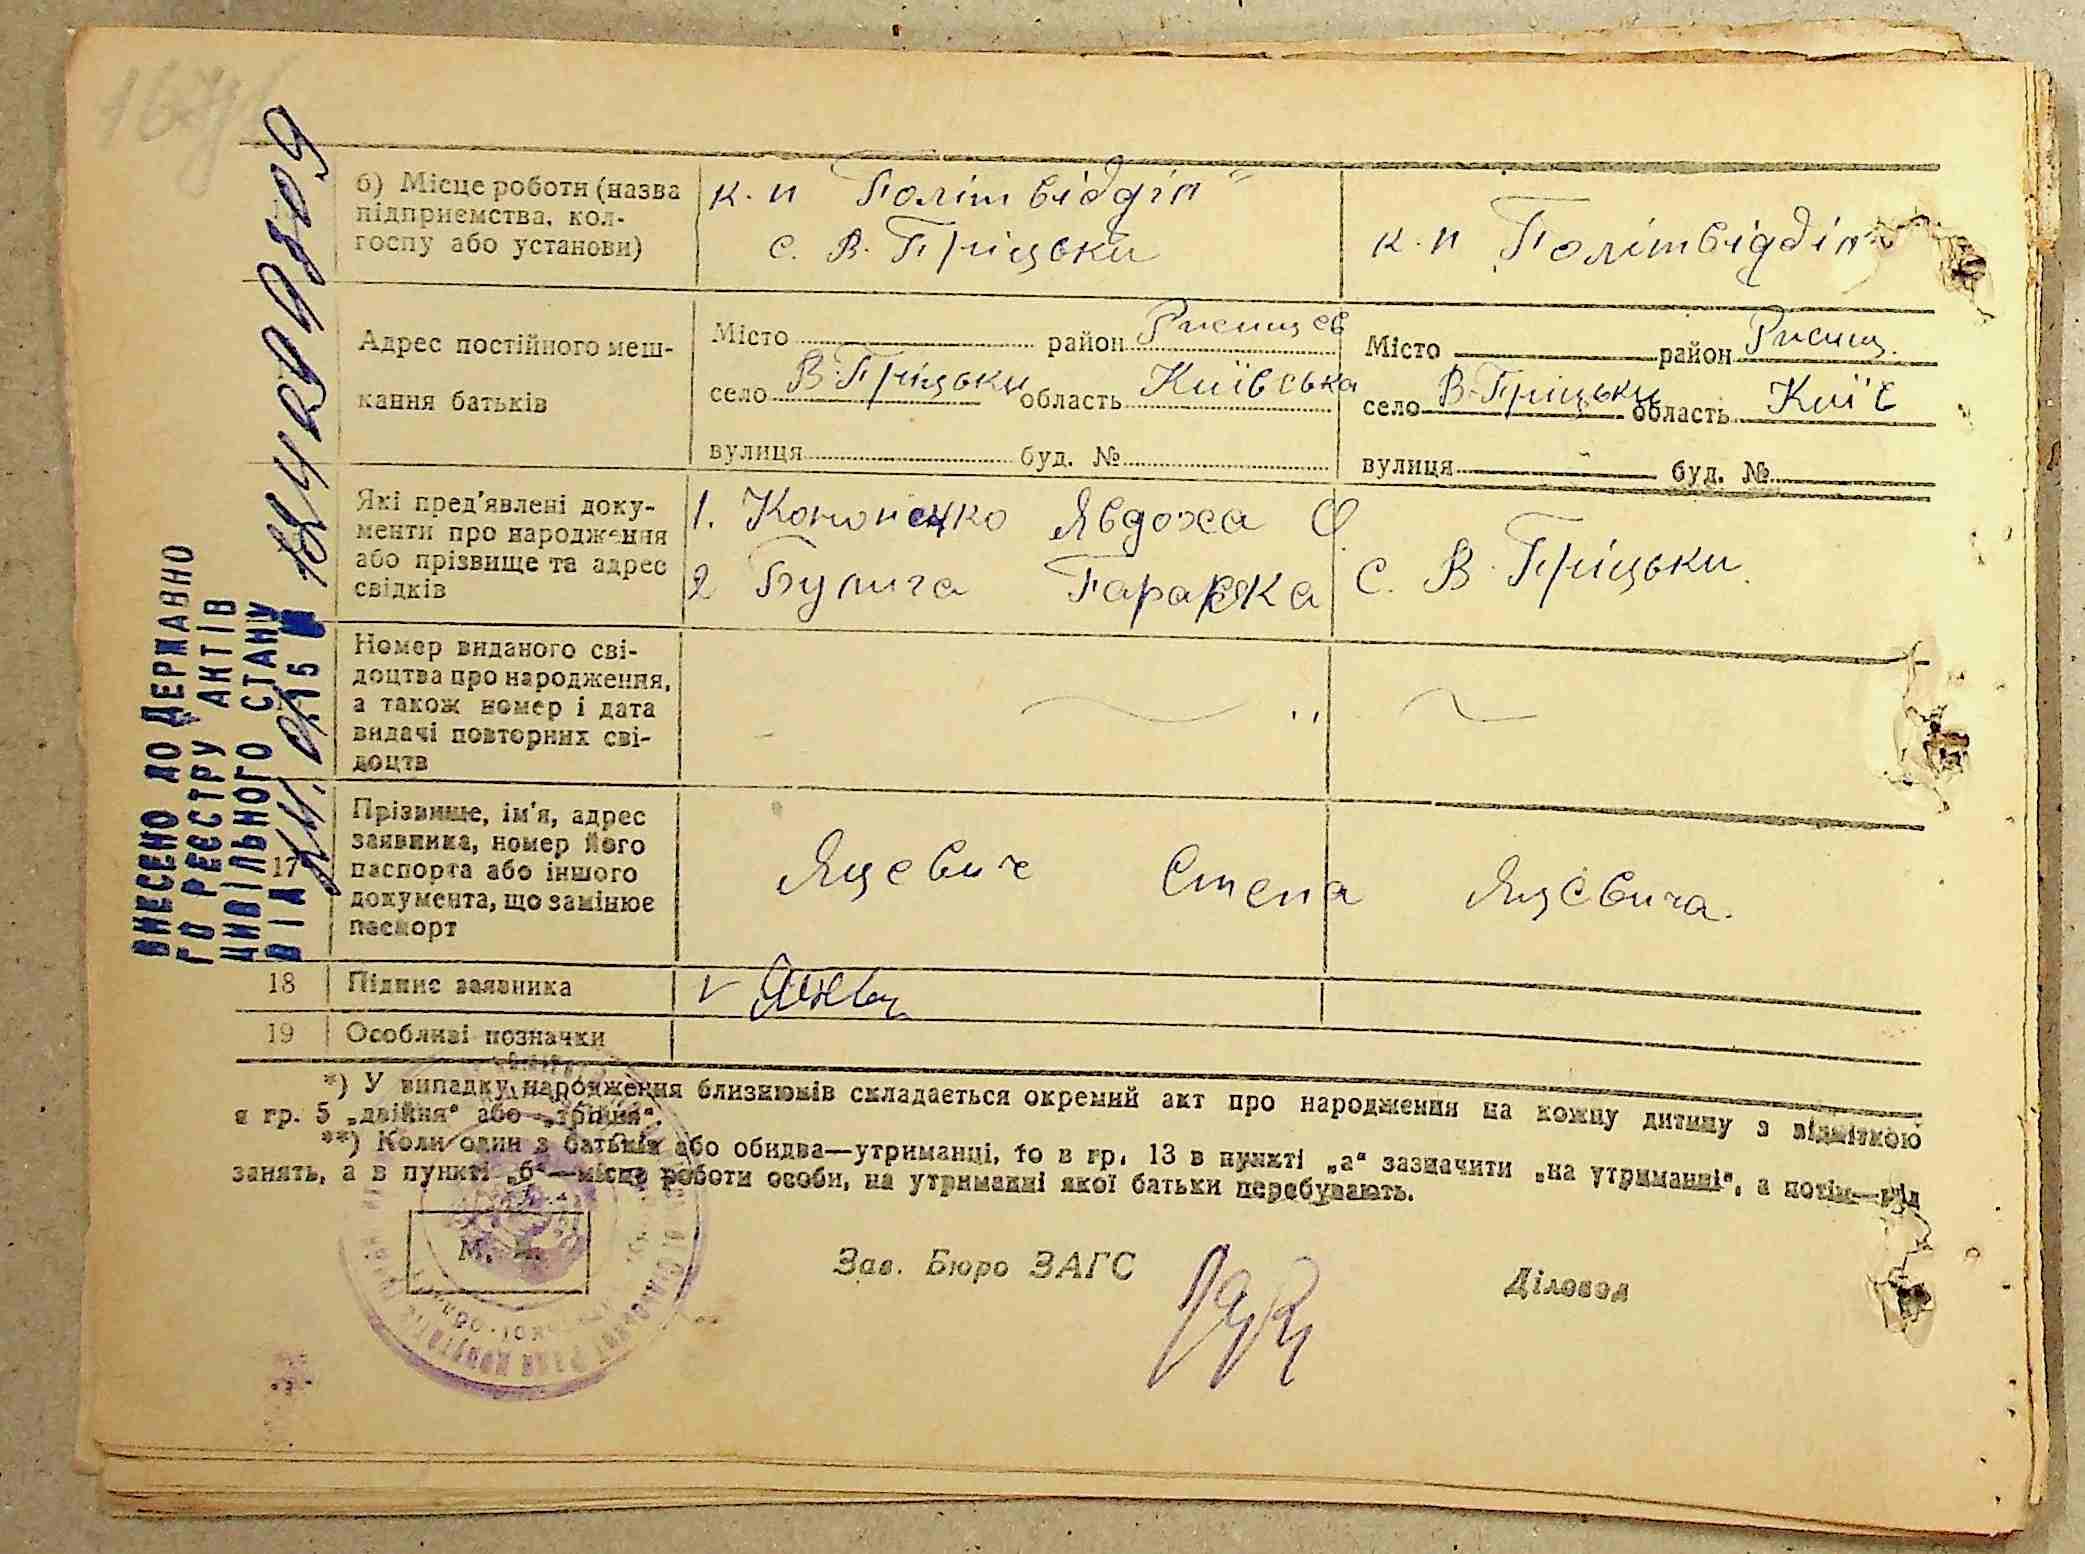 ВНЕСЕНО ДО ДЕРЖАВНО
ГО РЕЄСТРУ АКТІВ
ЦИВІЛЬНОГО СТАНУ
ВІД
б) Місце роботи (назва
підприємства, кол-
госпу або установи)
к. п Політвідділ"
с. В. Пріцьки
к. п Політвідділ"
Адрес постійного меш-
кання батьків
Місто район Ржищев
село В-Пріцьки область Київська
вулиця буд. №
Місто район Ржищ.
село В-Пріцьки область Київ
вулиця буд. №
Які пред'явлені доку-
менти про народження
або прізвище та адрес
свідків
1. Кононенко Явдоха Ф
2 Булига Параска
с. В. Пріцьки.
Номер виданого сві-
доцтва про народження,
а також номер і дата
видачі повторних сві-
доцтв
17
Прізвище, ім'я, адрес
заявника, номер його
паспорта або іншого
документа, що замінює
паспорт
Яцевич Степа Яцевича.
18 Підпис заявника
19 Особливі позначки
*) У випадку народження близнюків складається окремий акт про народження на кожну дитину з відміткою
в гр. 5 „двійня" або „трійня".
**) Коли один з батьків або обидва—утриманці, то в гр. 13 в пункті „а" зазначити „на утриманні", а потім—від
занять, а в пункті „б"—місце роботи особи, на утриманні якої батьки перебувають.
М.
Зав. Бюро ЗАГС
Діловод